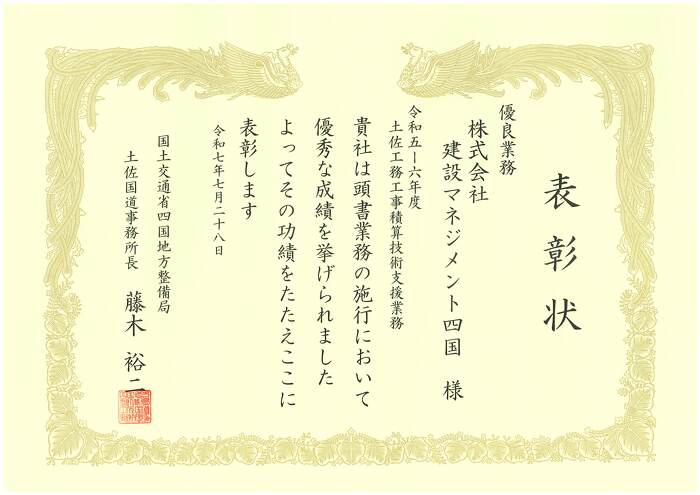 表彰状
優良業務
株式会社
建設マネジメント四国 様
令和五―六年度
土佐工務工事積算技術支援業務
貴社は頭書業務の施行において
優秀な成績を挙げられました
よってその功績をたたえここに
表彰します
令和七年七月二十八日
国土交通省四国地方整備局
土佐国道事務所長 藤木 裕二